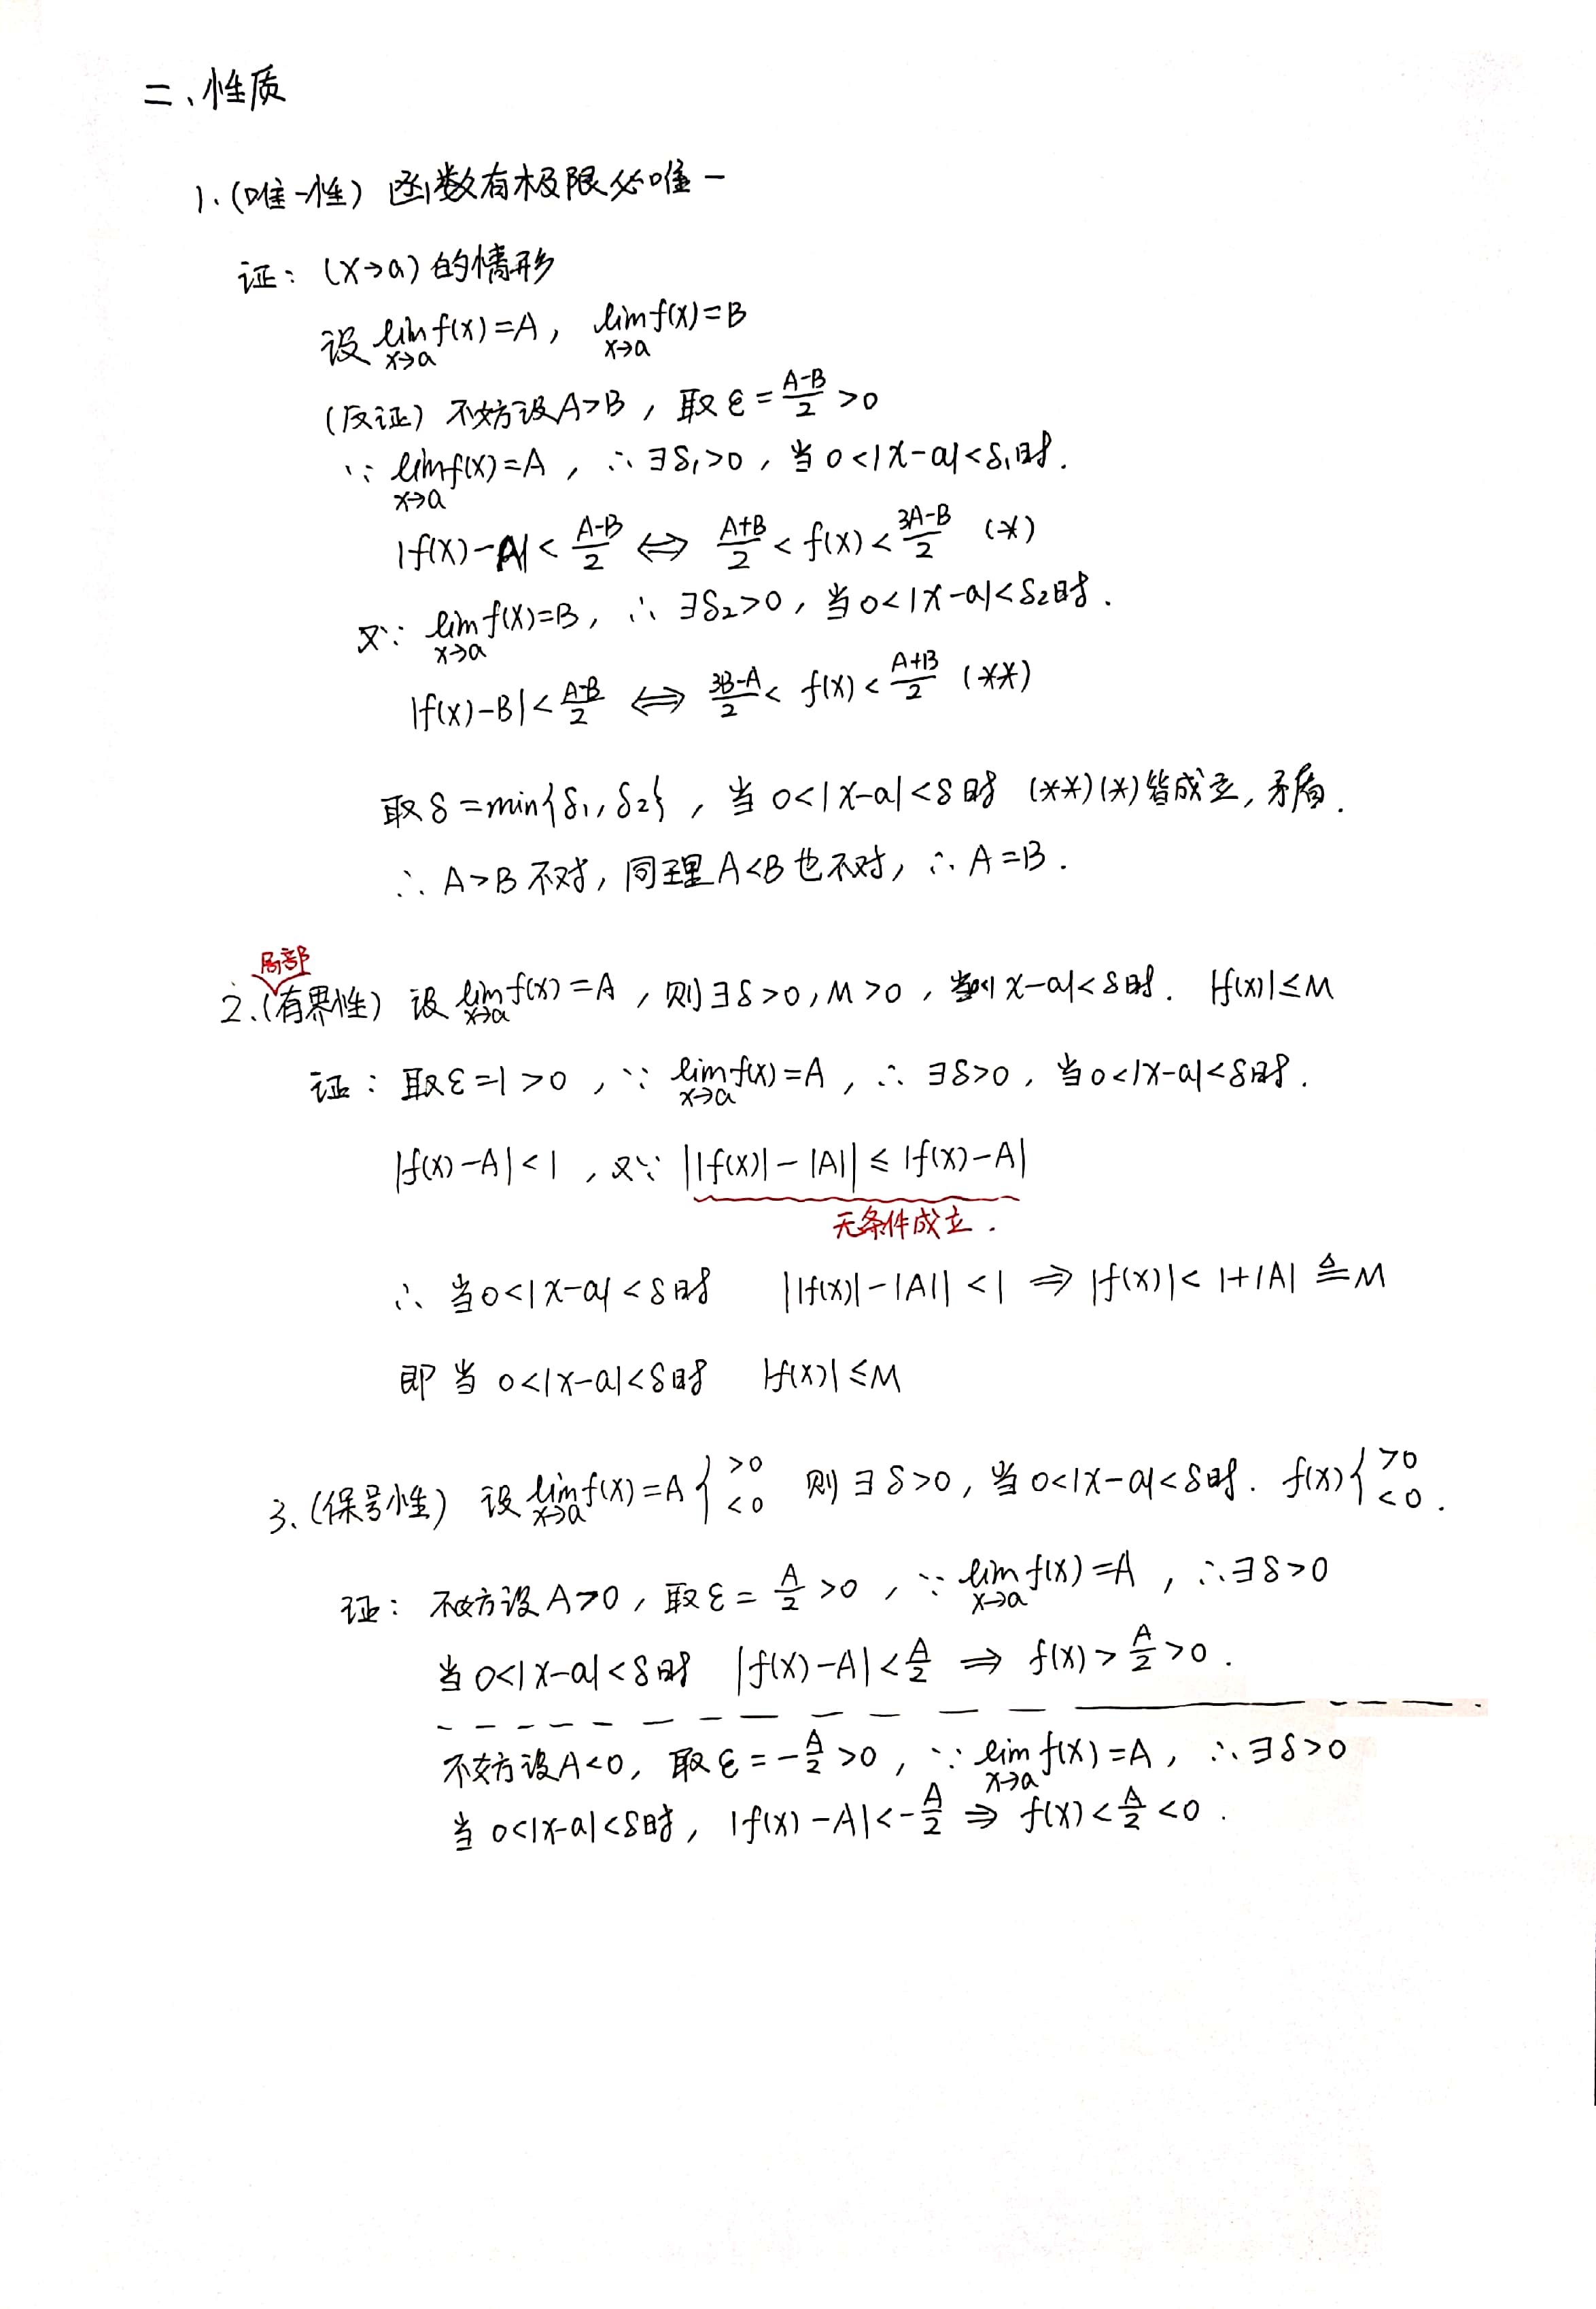 二、性质
1.(唯一性) 函数有极限必唯一
证: (x→a) 的情形
设 lim_{x→a} f(x)=A, lim_{x→a} f(x)=B
(反证) 不妨设A>B, 取 ε = (A-B)/2 >0
∵ lim_{x→a} f(x)=A, ∴ ∃δ₁>0, 当 0<|x-a|<δ₁时.
|f(x)-A| < (A-B)/2 ⟺ (A+B)/2 < f(x) < (3A-B)/2 (*)
又∵ lim_{x→a} f(x)=B, ∴ ∃δ₂>0, 当0<|x-a|<δ₂时.
|f(x)-B| < (A-B)/2 ⟺ (3B-A)/2 < f(x) < (A+B)/2 (**)
取δ=min{δ₁,δ₂}, 当 0<|x-a|<δ时 (**)(*)皆成立,矛盾.
∴ A>B 不对, 同理A<B也不对, ∴ A=B.
局部
2.(有界性) 设 lim_{x→a} f(x)=A, 则∃δ>0, M>0, 当0<|x-a|<δ时. |f(x)|≤M
证: 取ε=1>0, ∵ lim_{x→a} f(x)=A, ∴ ∃δ>0, 当0<|x-a|<δ时.
|f(x)-A|<1, 又∵ ||f(x)|-|A|| ≤ |f(x)-A|
无条件成立.
∴ 当0<|x-a|<δ时 ||f(x)|-|A||<1 ⇒ |f(x)|<1+|A| ≜M
即当 0<|x-a|<δ时 |f(x)|≤M
3.(保号性) 设 lim_{x→a} f(x)=A { >0 <0 则∃δ>0, 当0<|x-a|<δ时. f(x) { >0 <0.
证: 不妨设A>0, 取ε= A/2 >0, ∵ lim_{x→a} f(x)=A, ∴∃δ>0
当0<|x-a|<δ时 |f(x)-A|<A/2 ⇒ f(x)>A/2>0.
不妨设A<0, 取ε=-A/2>0, ∵ lim_{x→a} f(x)=A, ∴∃δ>0
当 0<|x-a|<δ时, |f(x)-A|<-A/2 ⇒ f(x)<A/2<0.